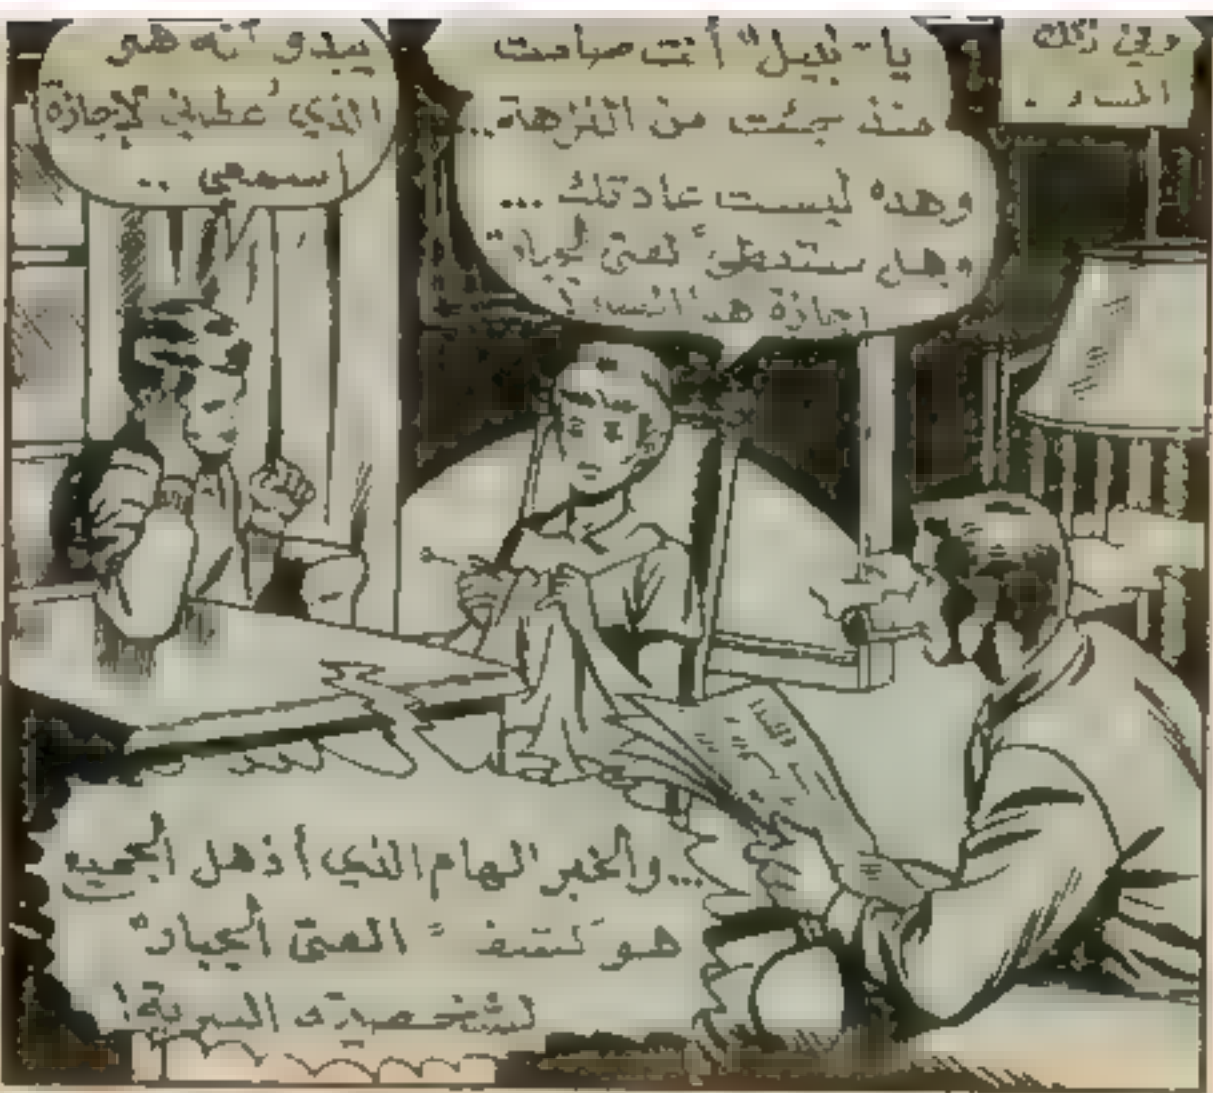 وفي ذلك
المساء ..
يا "نبيل" أنت صامت
منذ جئت من النزهة..
وهذه ليست عادتك ...
وهل ستعطي الفتى الجبار
إجازة هذا المساء؟
يبدو أنه هو
الذي أعطاني لإجازة
اسمعي ..
...والخبر الهام الذي أذهل الجميع
هو كشف " الفتى الجبار"
لشخصيته السرية!